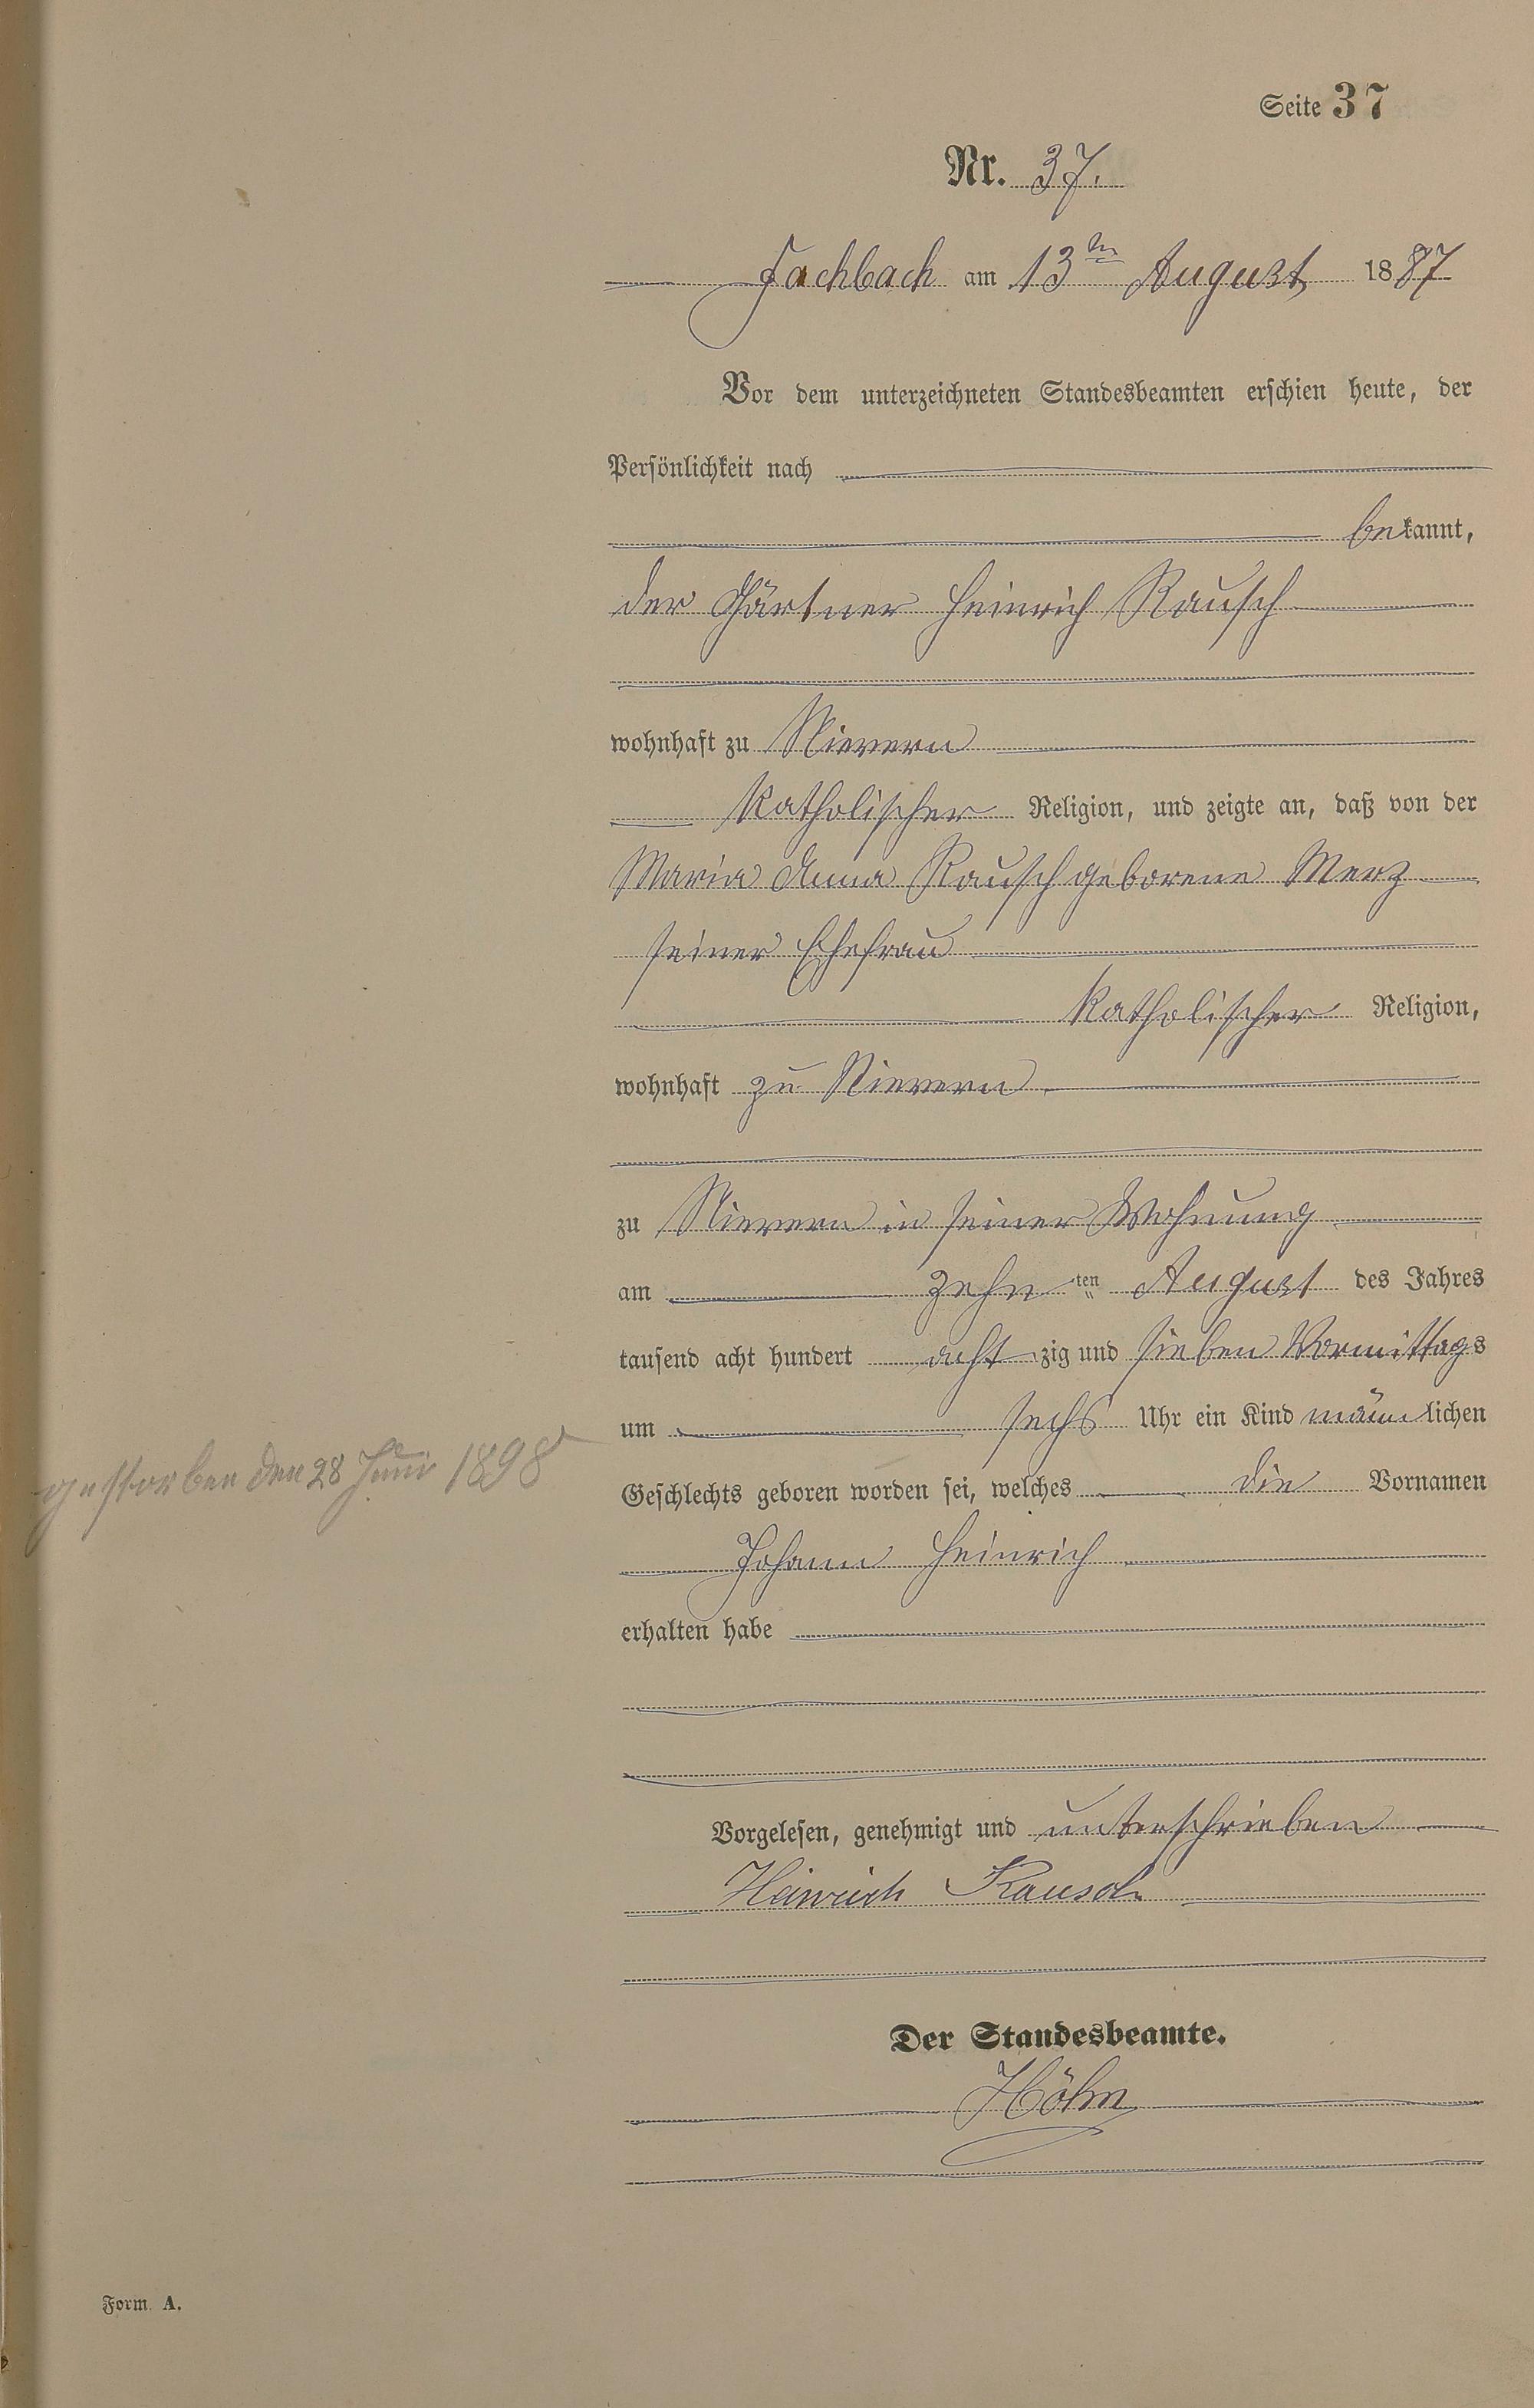 Seite 37
Nr. 37.
Fachbach am 13ten August 1887
Vor dem unterzeichneten Standesbeamten erschien heute, der
Persönlichkeit nach
bekannt,
der Gärtner Heinrich Rausch
wohnhaft zu Nievern
katholischer Religion, und zeigte an, daß von der
Maria Anna Rausch geborene Merz
seiner Ehefrau
katholischer Religion,
wohnhaft zu Nievern
zu Nievern in seiner Wohnung
am zehnten August des Jahres
tausend acht hundert achtzig und sieben Vormittags
um sechs Uhr ein Kind männlichen
gestorben den 28 Juni 1898
Geschlechts geboren worden sei, welches die Vornamen
Johann Heinrich
erhalten habe
Vorgelesen, genehmigt und unterschrieben
Heinrich Rausch
Der Standesbeamte.
Höhn
Form. A.